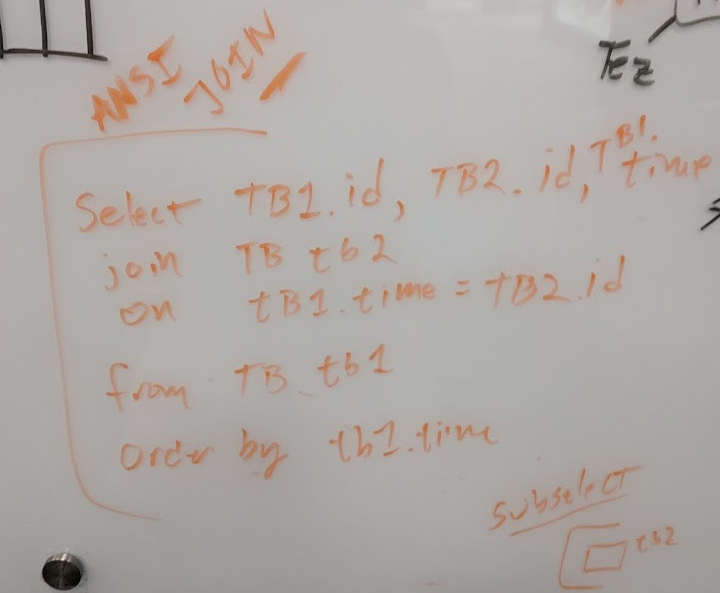 Tez
ANSI JOIN
Select TB1.id, TB2.id, TB1.time
join TB tb2
on tB1.time = TB2.id
from TB tb1
order by tb1.time
subselect
tb2